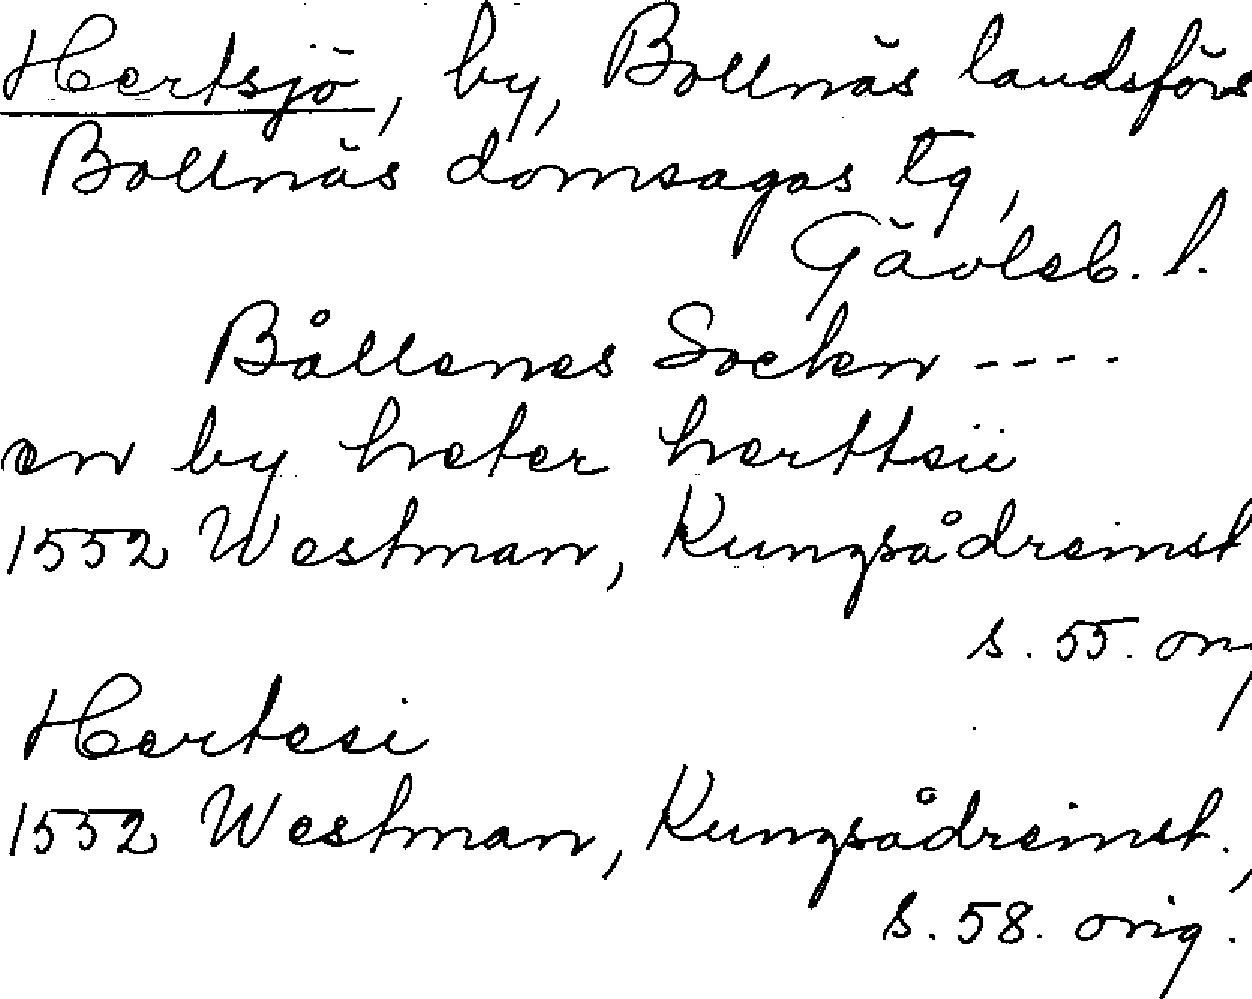 Hertsjö, by, Bollnäs landsförs
Bollnäs domsagas tg,
Gävleb. l.
Bållenes Socken ----
en by heterherttsii
1552 Westman, Kungsådreinst
s. 55. orig
Hertesi
1552 Westman, Kungsådreinst.,
s. 58. orig.